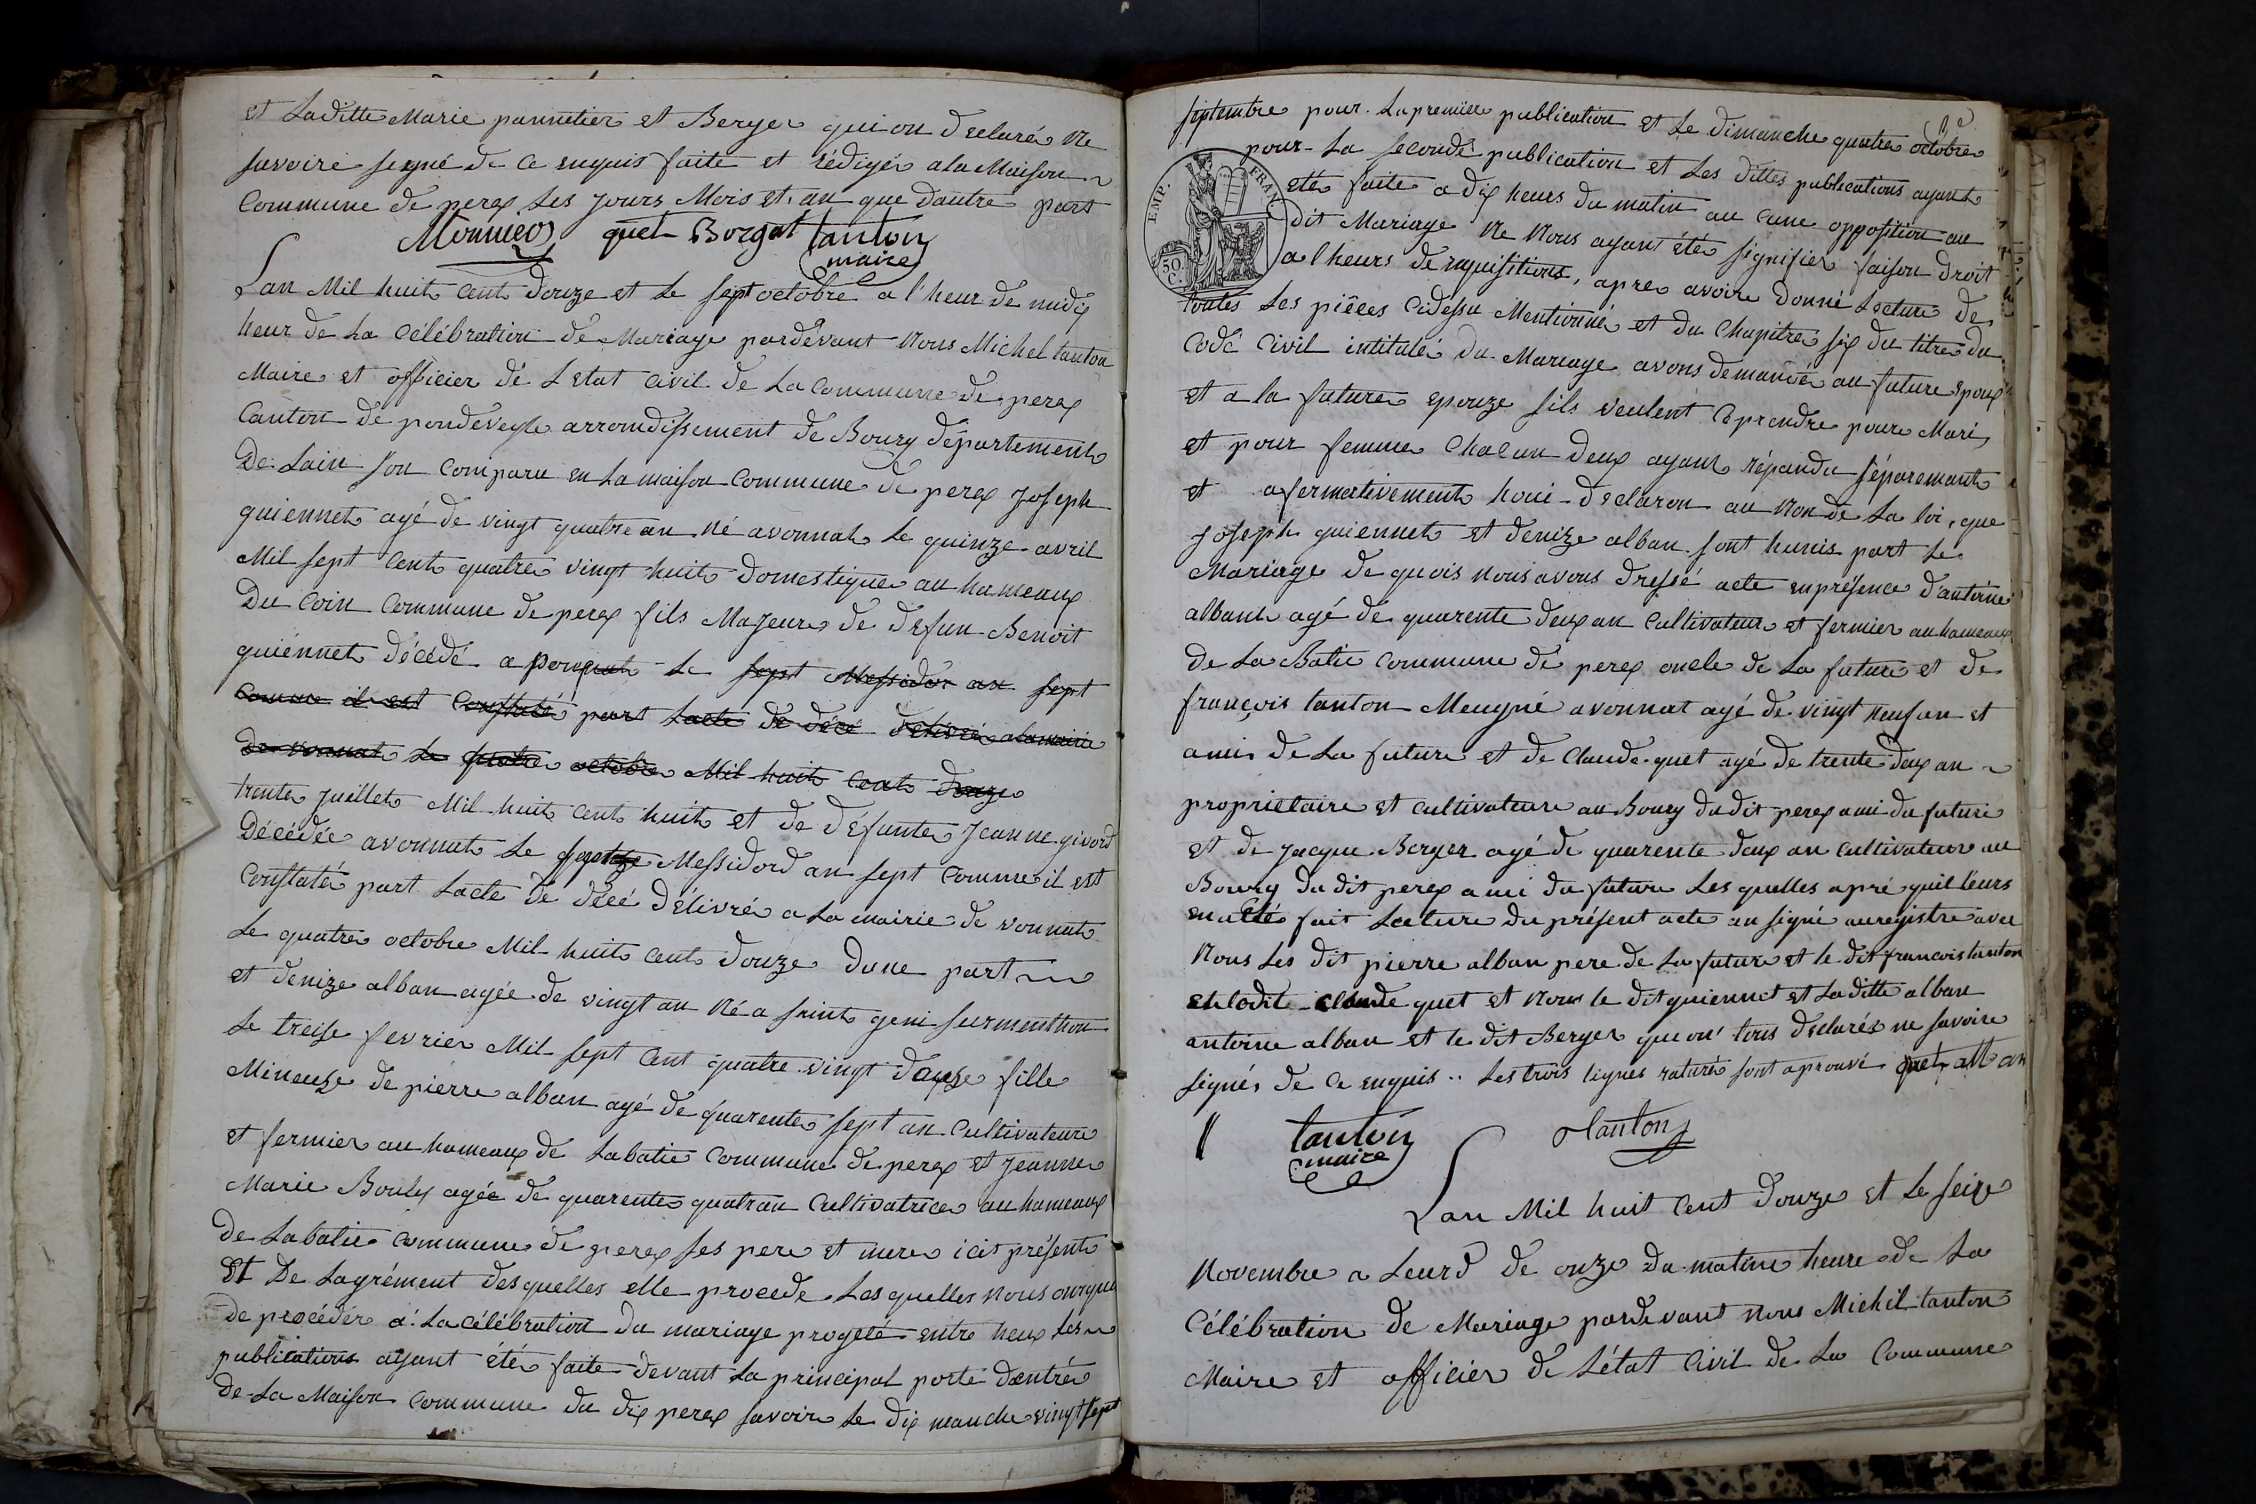 et Laditte Marie pannetier et Berger qui on déclaré Ne
savoire signé de ce enquis faite et rédigée a la Maison
Commune de perex Les jours Mois et, an que dautre part
Monnier quet Borgat tanton
maire
Lan Mil huit cent douze et Le sept octobre a l'heur de midix
heur de La célébration de Mariage pardevant Nous Michel tanton
Maire et officier de Letat civil de La commune de perex
Canton de pondeveyle arrondissement de Bourg département
De Lain son comparu en La maison commune de perex joseph
guiennet agé de vingt quatre an né avonnat Le quinze avril
Mil sept cent quatre vingt huit domestique au hameaux
Du Coin commune de perex fils Majeure de defun Benoit
guiennet décédé a ponquat Le sept Messidor an sept
comme il est constaté part Lacte de décé délivré a la mairie
de vonnat Le quatre octobre Mil huit cent douze
trente juillet Mil huit cent huit et de défunte jeanne givord
Décédée avonnat Le Messidord an sept comme il est
constaté part Lacte de décé délivré a La mairie de vonnat
Le quatre octobre Mil huit cent douze dune part
et denize alban agée de vingt an Né a saint geni surmenthon
Le treise fevrier Mil sept cent quatre vingt douze fille
Mineuze de pierre alban agé de quarente sept an cultivateure
et fermier au hameaux de Labatie commune de perex et jeanne
Marie Bouly agée de quarente quatran cultivatrice au hameaux
de Labatie commune de perex ses pere et mere icit présent
Et De Lagrément desquelles elle procede Lesquelles nous onrequi
de procéder a La célébration du mariage progeté entre heux Les
publications ayant été faite devant La principal porte dentrée
de La Maison commune du dix perex savoire Le dix manche vingt sept
septembre pour La premiere publication et Le dimanche quatre octobre
pour La seconde publication et Les dittes publications ayant
eté faite a dix heurs du matin au cune opposition au
dit Mariage Ne Nous ayant été signifier faison droit
a l heurs de requisitions, apres avoire donné Lecture de
toutes Les pièces cidessu Mentionné et du Chapitre six du titre du
Codé Civil intitulé du Mariage avons demandé au future epoux
et a la future epouze sils veulent ceprendre pour Mari
et pour femme Chacun deux ayant répandu séparemant
et afermativement houi declaron au Nom de La loi, que
joseph guiennet et denize alban sont hunis part Le
Mariage de quois nous avons dressé acte enprésence d'antoine
albant agé de quarente deux an cultivateur et fermier au hameaux
de La Batie commune de perex oncle de La future et de
françois tanton Meugné avonnat agé de vingt neuf an et
ami de La future et de Claude quet agé de trente deux an
proprietaire et cultivateure au Bourg dudit perex ami du future
et de jacque Berger agé de quarente deux an cultivateur au
Bourg du dit perex ami du future Les quelles apré quil leurs
enaété fait Lecture du présent acte an signé auregistre avec
Nous Les dit pierre alban pere de La future et le dit francois tanton
et ledit Claude quet et Nous le dit guiennet et Laditte alban
antoine alban et le dit Berger qu on tous declarés ne savoire
signés de ce enquis .. Les trois lignes raturé sont aprouvé quet alban
tanton
maire
tanton
Lan Mil huit cent douze et Le seize
Novembre a Leurd de onze du matin heure de La
Célébration de Mariage pardevant nous Michel tanton
Maire et officier de Létat civil de La Commune
EMP.
FRAN.
50
C.